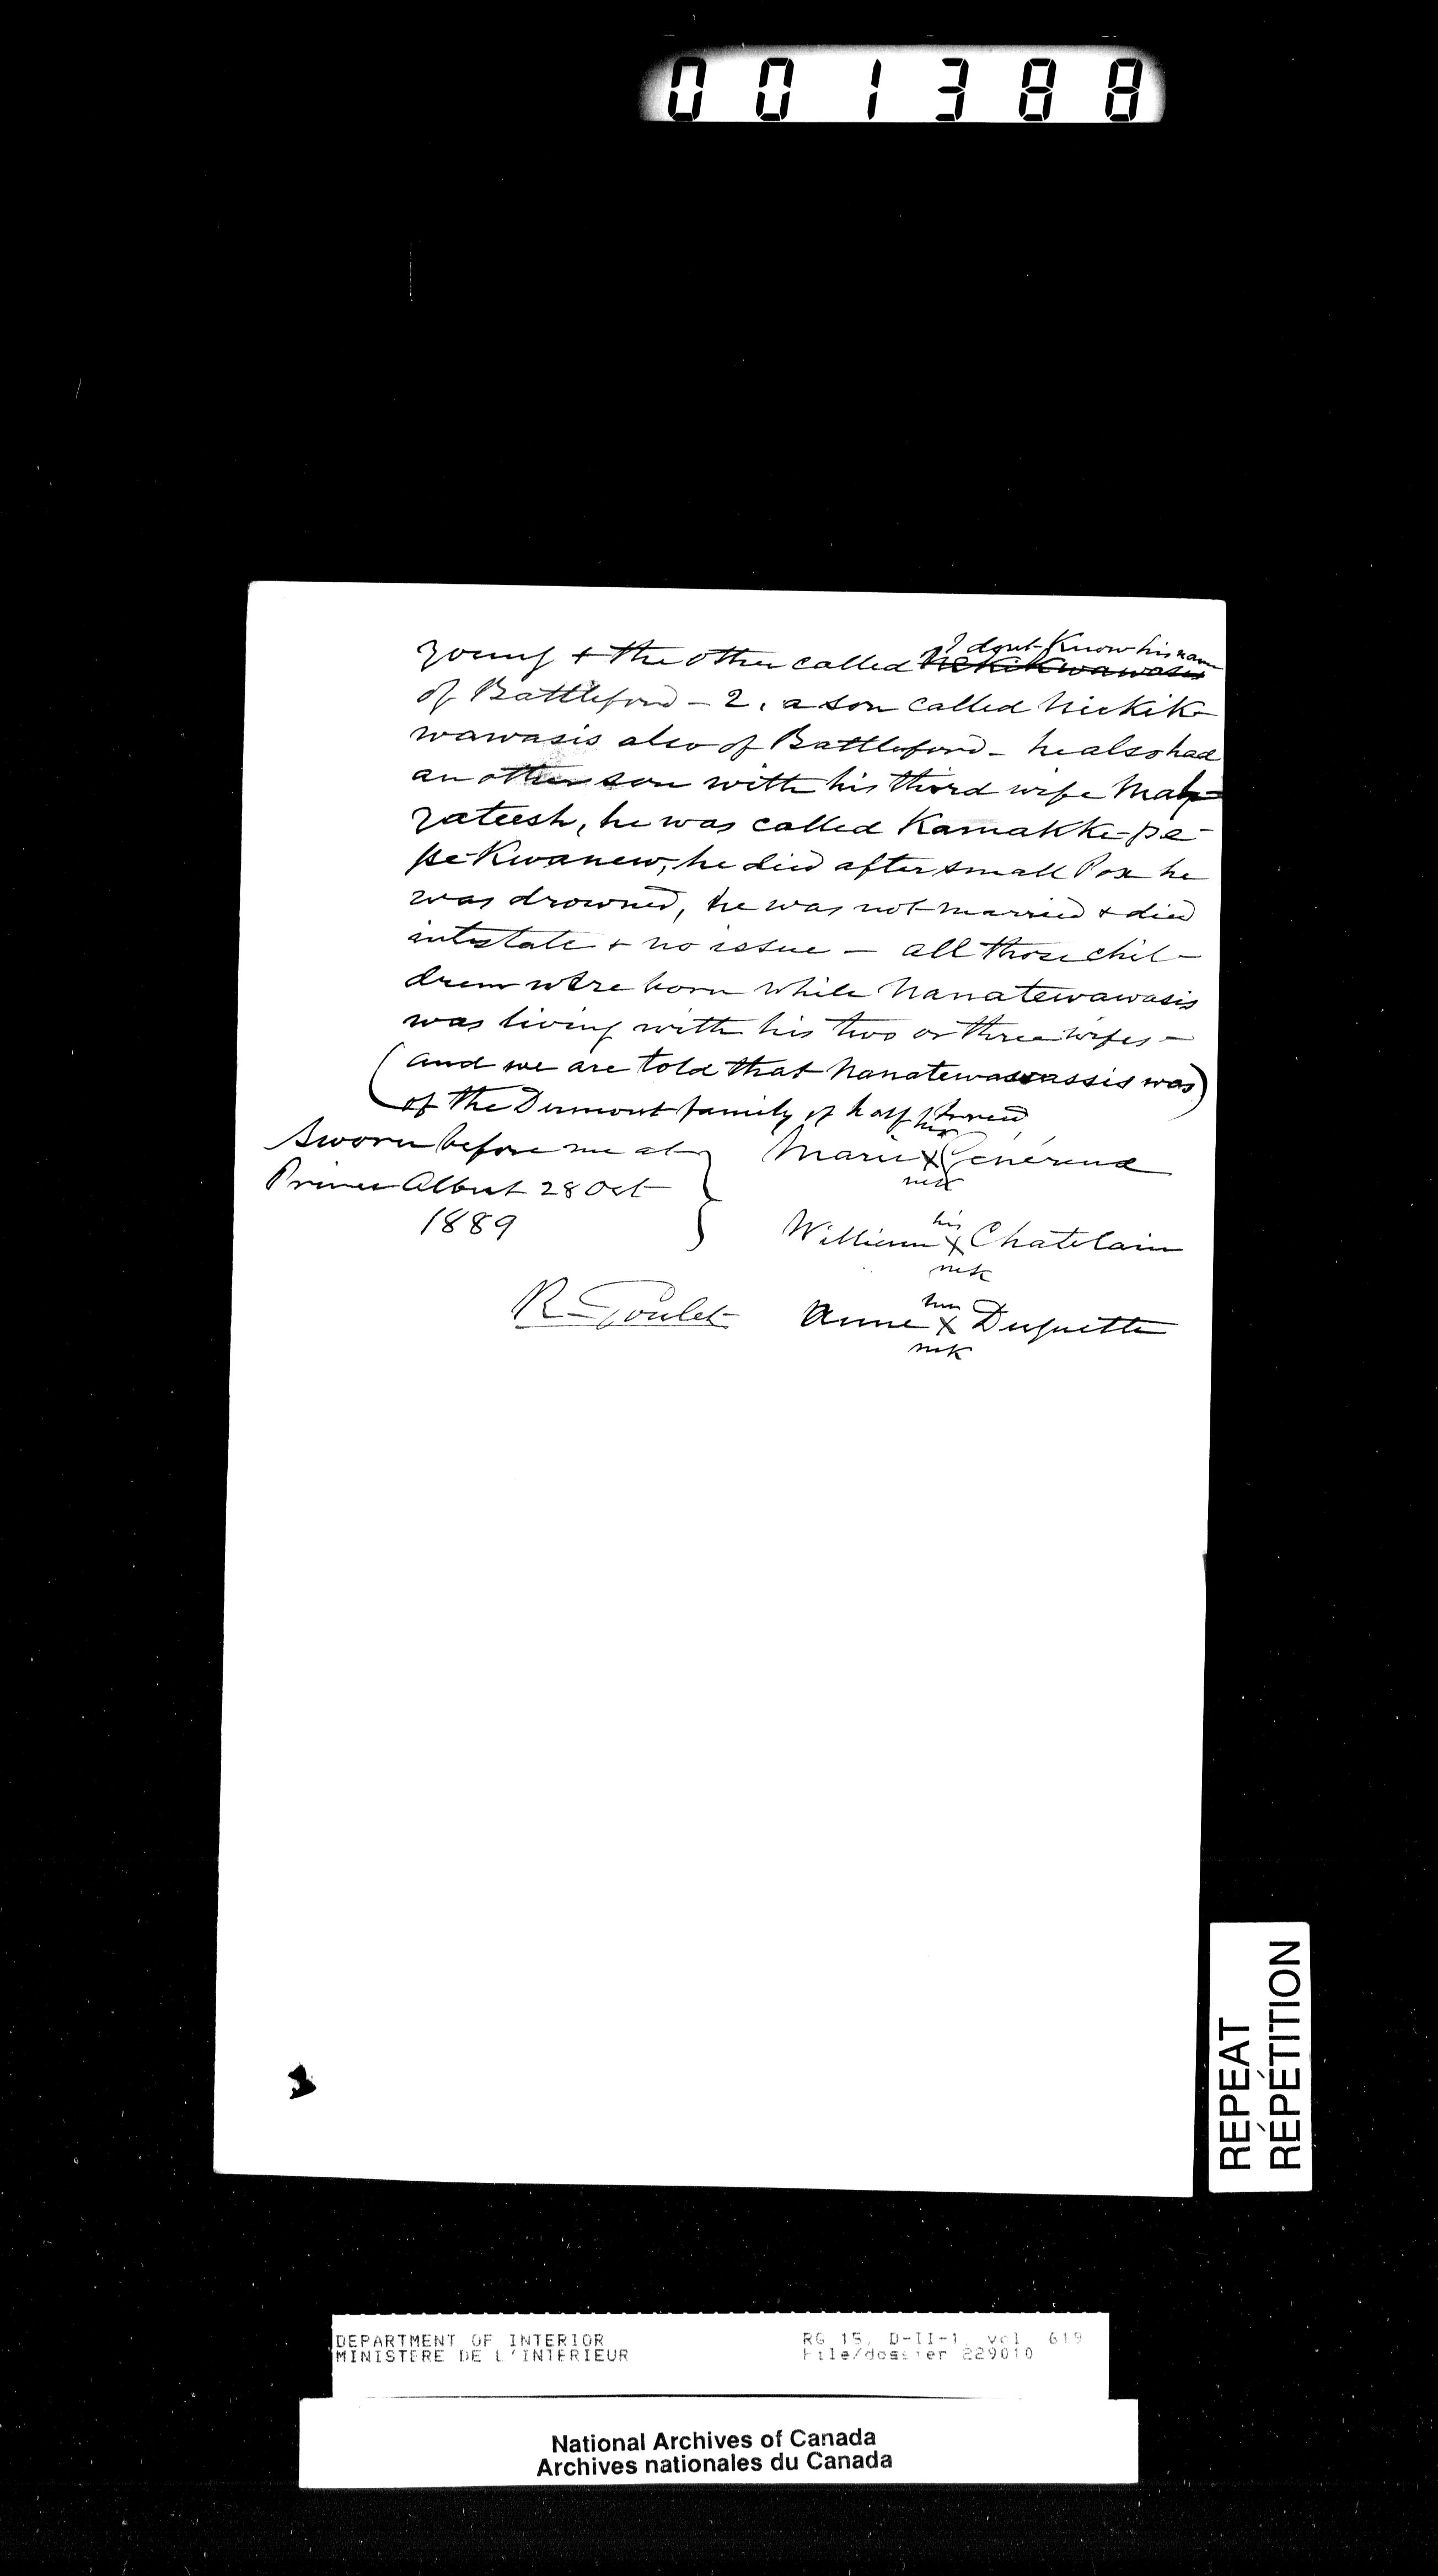 001388
I dont Know his name
young + the other called Nekikwawasis
of Battleford - 2. a son called Nickik-
wawasis also of Battleford - he also had
an other son with his third wife Mah-
yateesh, he was called Kamakke-pe-
pe-Kwanew, he died after small Pox he
was drowned, he was not married + died
intestate + no issue - all those chil-
dren were born while Nanatewawasis
was living with his two or three wifes -
(and we are told that Nanatewawassis was)
of the Dumont family of half breed
Sworn before me at
Prince Albert 28 Oct
1889
R. Goulet
her
Marie X Généreux
mk
his
William X Chatelain
mk
her
Anne X Duquette
mk
REPEAT
RÉPÉTITION
DEPARTMENT OF INTERIOR
MINISTERE DE L'INTERIEUR
RG 15, D-II-1, vol. 619
File/dossier 229010
National Archives of Canada
Archives nationales du Canada